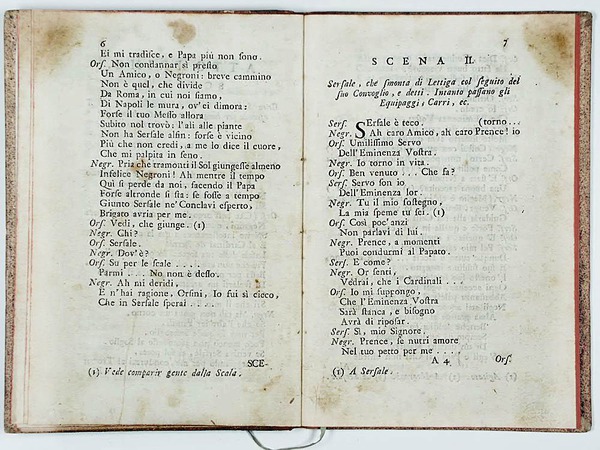 6
Ei mi tradisce, e Papa più non sono.
Ors. Non condannar sì presto
Un Amico, o Negroni: breve cammino
Non è quel, che divide
Da Roma, in cui noi siamo,
Di Napoli le mura, ov'ei dimora:
Forse il tuo Messo allora
Subito nol trovò: l'ali alle piante
Non ha Sersale alfin: forse è vicino
Più che non credi, a me lo dice il cuore,
Che mi palpita in seno.
Negr. Pria che tramonti il Sol giungesse almeno
Infelice Negroni! Ah mentre il tempo
Quì si perde da noi, facendo il Papa
Forse altronde si sta: se fosse a tempo
Giunto Sersale ne' Conclavi esperto,
Brigato avria per me.
Ors. Vedi, che giunge. (1)
Negr. Chi?
Ors. Sersale.
Negr. Dov'è?
Ors. Su per le scale ....
Parmi .... No non è desso.
Negr. Ah mi deridi,
E n'hai ragione, Orsini, Io fui sì cieco,
Che in Sersale sperai ....
SCE-
(1) Vede comparir gente dalla Scala.
7
SCENA II.
Sersale, che smonta di Lettiga col seguito del
suo Convoglio, e detti. Intanto passano gli
Equipaggi, Carri, ec.
Sers. SErsale è teco, (torno ...
Negr. Ah caro Amico, ah caro Prence! io
Ors. Umilissimo Servo
Dell'Eminenza Vostra.
Negr. Io torno in vita.
Ors. Ben venuto ... Che fa?
Sers. Servo son io
Dell'Eminenza lor.
Negr. Tu il mio sostegno,
La mia speme tu sei. (1)
Ors. Così poc'anzi
Non parlavi di lui.
Negr. Prence, a momenti
Puoi condurmi al Papato.
Sers. E come?
Negr. Or senti,
Vedrai, che i Cardinali ...
Ors. Io mi suppongo,
Che l'Eminenza Vostra
Sarà stanca, e bisogno
Avrà di riposar.
Sers. Sì, mio Signore,
Negr. Prence, se nutri amore
Nel tuo petto per me ....
A 4 Ors.
(1) A Sersale.